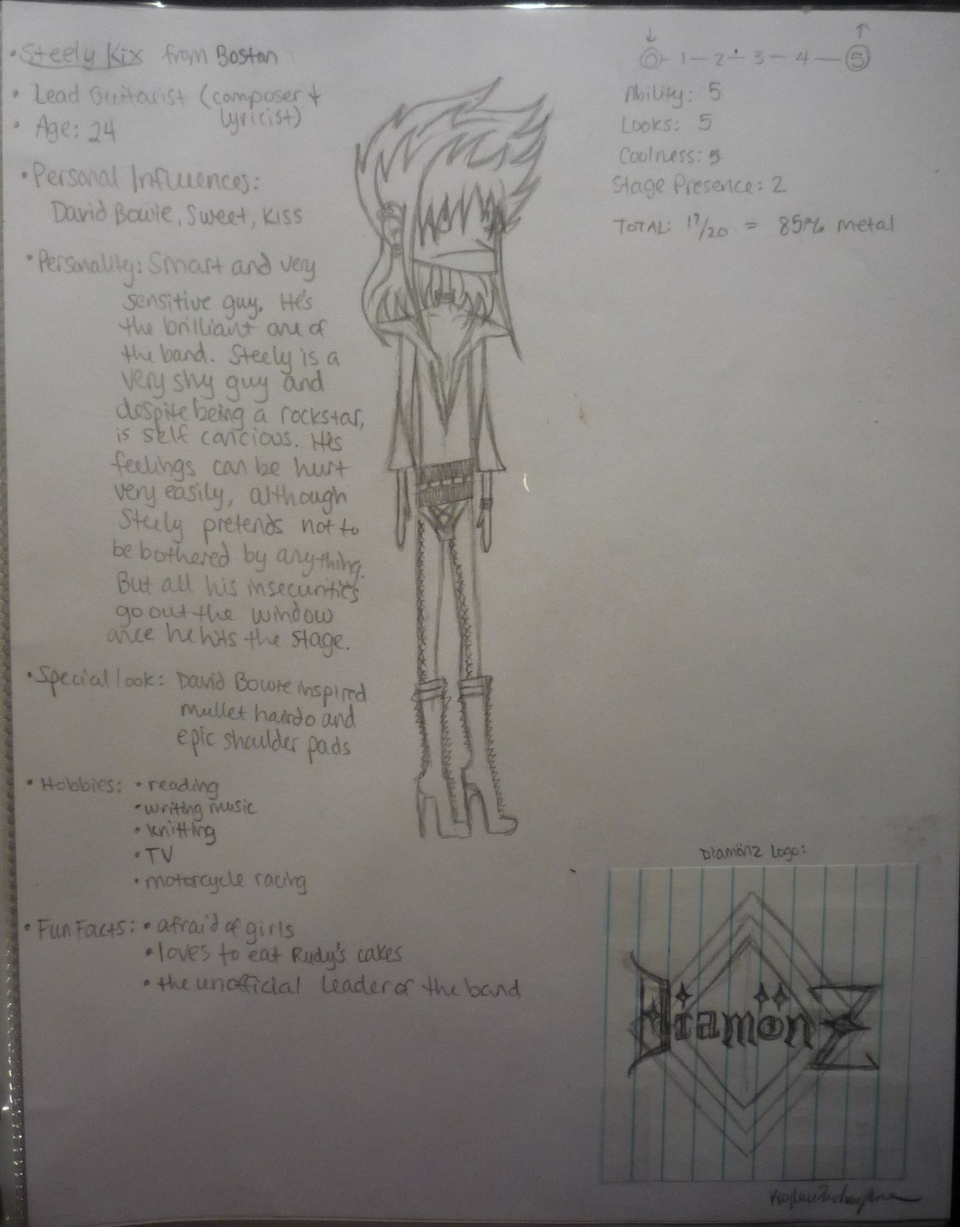 • Steely Kix from Boston
• Lead Guitarist (composer &
lyricist)
• Age: 24
• Personal Influences:
David Bowie, Sweet, KISS
• Personality: Smart and very
sensitive guy. He's
the brilliant one of
the band. Steely is a
very shy guy and
despite being a rockstar,
is self concious. His
feelings can be hurt
very easily, although
Steely pretends not to
be bothered by anything.
But all his insecurities
go out the window
once he hits the stage.
• Special look: David Bowie inspired
mullet hairdo and
epic shoulder pads
• Hobbies: • reading
• writing music
• knitting
• TV
• motorcycle racing
• Fun Facts: • afraid of girls
• loves to eat Rudy's cakes
• the unofficial leader of the band
↓ ↑
0 - 1 - 2 - 3 - 4 - 5
Ability: 5
Looks: 5
Coolness: 5
Stage Presence: 2
TOTAL: 17/20 = 85% metal
Diamönz Logo:
DiamönZ